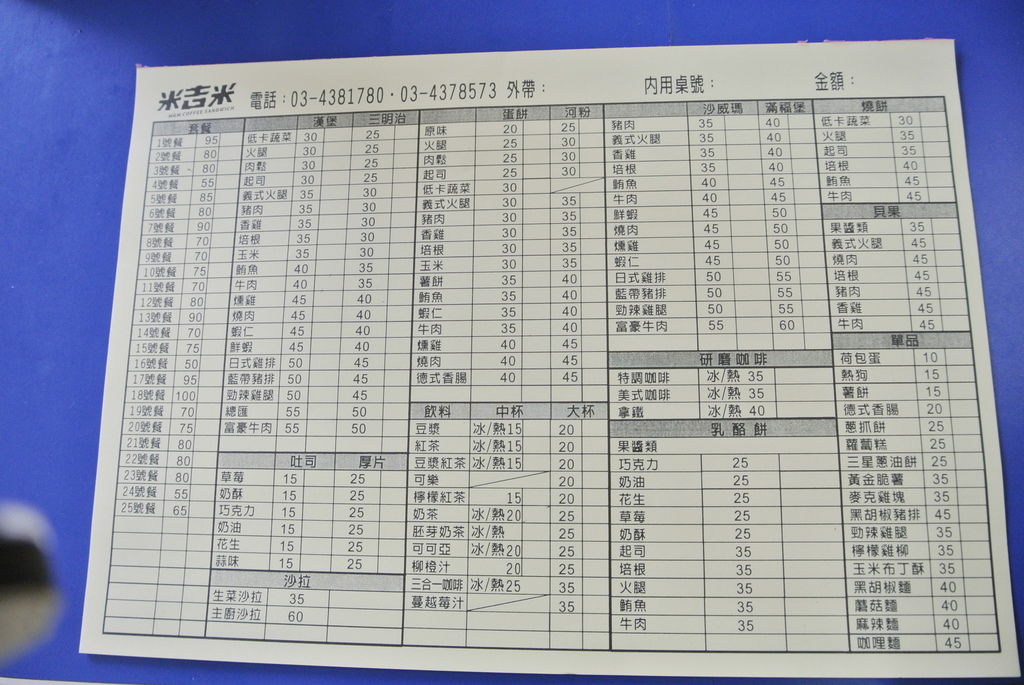 米吉米 電話：03-4381780·03-4378573 外帶： 內用桌號： 金額：
M&M COFFEE SANDWICH
套餐
1號餐 95
2號餐 80
3號餐 80
4號餐 55
5號餐 85
6號餐 80
7號餐 90
8號餐 70
9號餐 70
10號餐 75
11號餐 70
12號餐 80
13號餐 90
14號餐 70
15號餐 75
16號餐 50
17號餐 95
18號餐 100
19號餐 70
20號餐 75
21號餐 80
22號餐 80
23號餐 80
24號餐 55
25號餐 65
漢堡 三明治
低卡蔬菜 30 25
火腿 30 25
肉鬆 30 25
起司 30 25
義式火腿 35 30
豬肉 35 30
香雞 35 30
培根 35 30
玉米 35 30
鮪魚 40 35
牛肉 40 35
燻雞 45 40
燒肉 45 40
蝦仁 45 40
鮮蝦 45 40
日式雞排 50 45
藍帶豬排 50 45
勁辣雞腿 50 45
總匯 55 50
富豪牛肉 55 50
吐司 厚片
草莓 15 25
奶酥 15 25
巧克力 15 25
奶油 15 25
花生 15 25
蒜味 15 25
沙拉
生菜沙拉 35
主廚沙拉 60
蛋餅 河粉
原味 20 25
火腿 25 30
肉鬆 25 30
起司 25 30
低卡蔬菜 30
義式火腿 30 35
豬肉 30 35
香雞 30 35
培根 30 35
玉米 30 35
薯餅 35 40
鮪魚 35 40
蝦仁 35 40
牛肉 35 40
燻雞 40 45
燒肉 40 45
德式香腸 40 45
飲料 中杯 大杯
豆漿 冰/熱15 20
紅茶 冰/熱15 20
豆漿紅茶 冰/熱15 20
可樂 20
檸檬紅茶 15 20
奶茶 冰/熱20 25
胚芽奶茶 冰/熱 25
可可亞 冰/熱20 25
柳橙汁 20 25
三合一咖啡 冰/熱25 35
蔓越莓汁 35
沙威瑪 滿福堡
豬肉 35 40
義式火腿 35 40
香雞 35 40
培根 35 40
鮪魚 40 45
牛肉 40 45
鮮蝦 45 50
燒肉 45 50
燻雞 45 50
蝦仁 45 50
日式雞排 50 55
藍帶豬排 50 55
勁辣雞腿 50 55
富豪牛肉 55 60
研磨咖啡
特調咖啡 冰/熱 35
美式咖啡 冰/熱 35
拿鐵 冰/熱 40
乳酪餅
果醬類
巧克力 25
奶油 25
花生 25
草莓 25
奶酥 25
起司 35
培根 35
火腿 35
鮪魚 35
牛肉 35
燒餅
低卡蔬菜 30
火腿 35
起司 35
培根 40
鮪魚 45
牛肉 45
貝果
果醬類 35
義式火腿 45
燒肉 45
培根 45
豬肉 45
香雞 45
牛肉 45
單品
荷包蛋 10
熱狗 15
薯餅 15
德式香腸 20
蔥抓餅 25
蘿蔔糕 25
三星蔥油餅 25
黃金脆薯 35
麥克雞塊 35
黑胡椒豬排 45
勁辣雞腿 35
檸檬雞柳 35
玉米布丁酥 35
黑胡椒麵 40
蘑菇麵 40
麻辣麵 40
咖哩麵 45